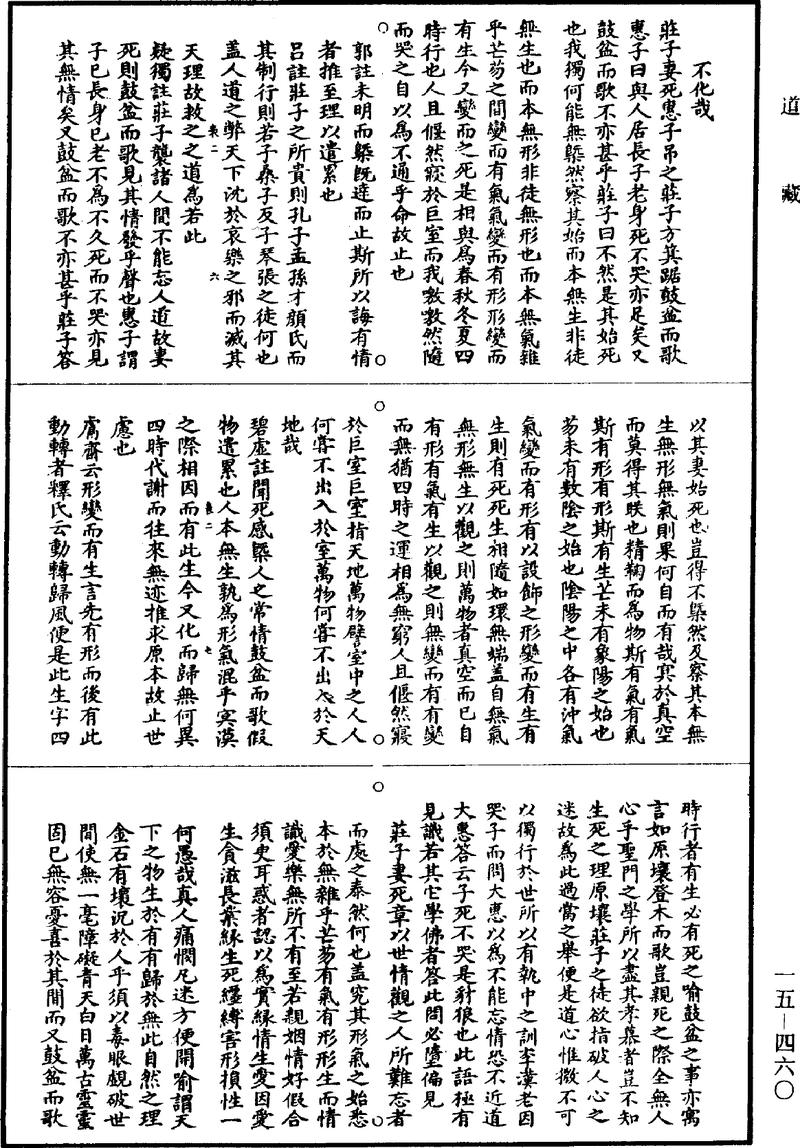 道藏
不化哉
莊子妻死惠子弔之莊子方箕踞鼓盆而歌
惠子曰與人居長子老身死不哭亦足矣又
鼓盆而歌不亦甚乎莊子曰不然是其始死
也我獨何能無槩然察其始而本無生非徒
無生也而本無形非徒無形也而本無氣雜
乎芒芴之間變而有氣氣變而有形形變而
有生今又變而之死是相與爲春秋冬夏四
時行也人且偃然寢於巨室而我噭噭然隨
而哭之自以爲不通乎命故止也
郭註未明而槩旣達而止斯所以誨有情
者推至理以遣累也
呂註莊子之所貴則孔子孟孫才顏氏而
其制行則若子桑子反子琴張之徒何也
蓋人道之弊天下沈於哀樂之邪而滅其
天理故救之之道爲若此
疑獨註莊子襲諸人間不能忘人道故妻
死則鼓盆而歌見其情發乎聲也惠子謂
子已長身已老不爲不久死而不哭亦見
其無情矣又鼓盆而歌不亦甚乎莊子荅
以其妻始死也豈得不槩然及察其本無
生無形無氣則果何自而有哉冥於真空
而莫得其眹也精鞠而爲物斯有氣有氣
斯有形有形斯有生芒未有象陽之始也
芴未有數陰之始也陰陽之中各有沖氣
氣變而有形有以設飾之形變而有生有
生則有死死生相隨如環無端蓋自無氣
無形無生以觀之則萬物者真空而已自
有形有氣有生以觀之則無變而有有變
而無猶四時之運相爲無窮人且偃然寢
於巨室巨室指天地萬物譬室中之人人
何甞不出入於室萬物何甞不出入於天
地哉
碧虛註聞死感槩人之常情鼓盆而歌假
物遣累也人本無生孰爲形氣混乎冥漠
之際相因而有此生今又化而歸無何異
四時代謝而往來無迹推求原本故止世
慮也
鬳齋云形變而有生言先有形而後有此
動轉者釋氏云動轉歸風便是此生字四
時行者有生必有死之喻鼓盆之事亦寓
言如原壤登木而歌豈親死之際全無人
心乎聖門之學所以盡其孝慕者豈不知
生死之理原壤莊子之徒欲指破人心之
迷故爲此過當之舉便是道心惟微不可
以獨行於世所以有執中之訓李漢老因
哭子而問大惠以爲不能忘情恐不近道
大惠荅云子死不哭是豺狼也此語極有
見識若其它學佛者荅此問必墮偏見
莊子妻死章以世情觀之人所難忘者
而處之泰然何也蓋究其形氣之始悉
本於無雜乎芒芴有氣有形形生而情
識愛樂無所不有至若親姻情好假合
須臾耳惑者認以爲實緣情生愛因愛
生貪滋長業緣生死纏縛害形損性一
何愚哉真人痛憫凡迷方便開喻謂天
下之物生於有有歸於無此自然之理
金石有壞況於人乎須以毒眼覷破世
間使無一毫障礙青天白日萬古靈靈
固已無容憂喜於其間而又鼓盆而歌
表二
六
表二
七
一五—四六〇